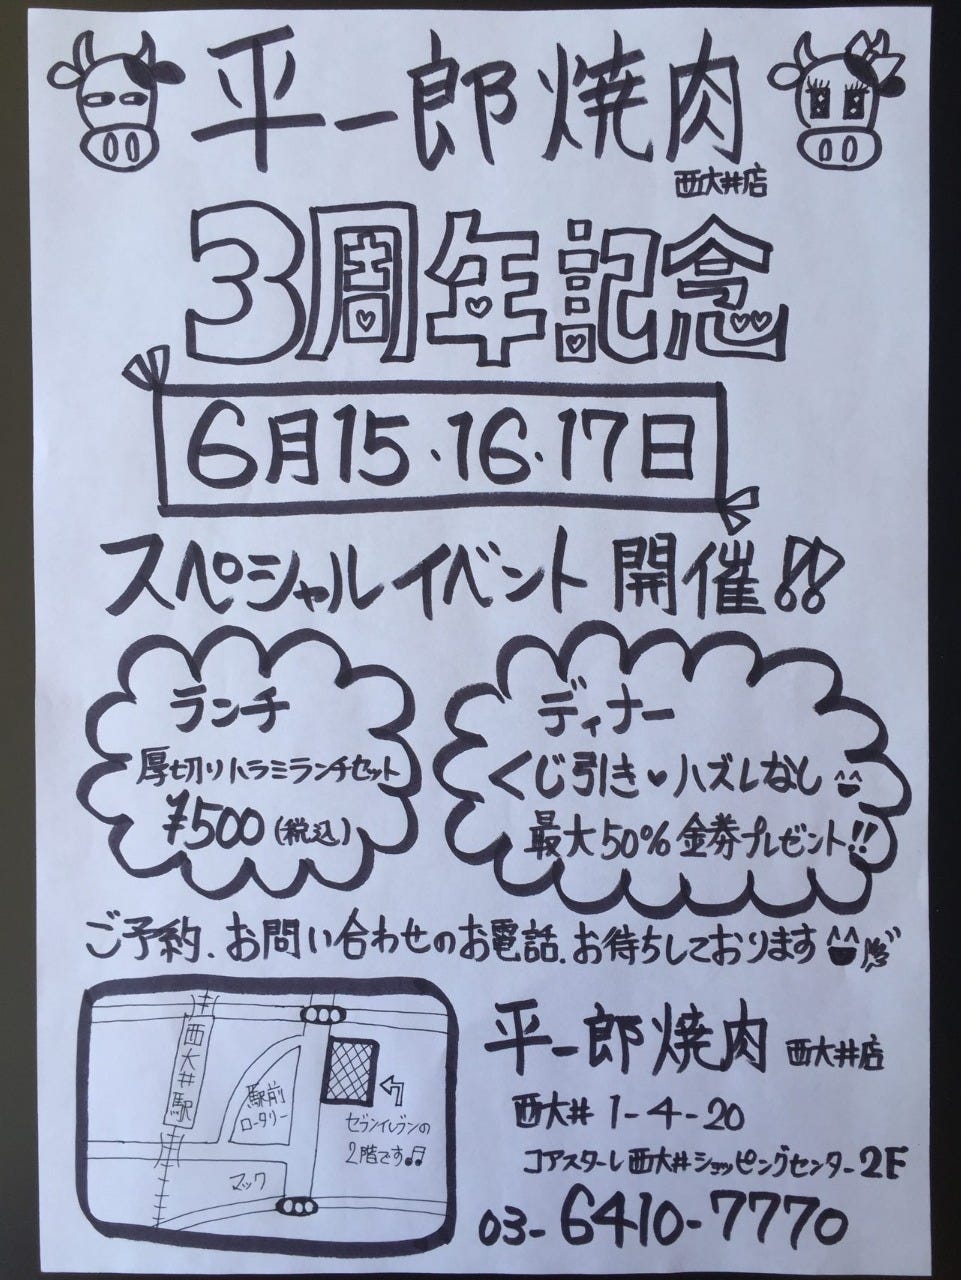 平一郎焼肉
西大井店
3周年記念
6月15・16・17日
スペシャルイベント開催!!
ランチ
厚切りハラミランチセット
¥500(税込)
ディナー
くじ引き♥ハズレなし
最大50%金券プレゼント!!
ご予約、お問い合わせのお電話、お待ちしております
西大井駅
駅前
ロータリー
セブンイレブンの
2階です♫
マック
平一郎焼肉 西大井店
西大井 1-4-20
コアスターレ西大井ショッピングセンター2F
03-6410-7770